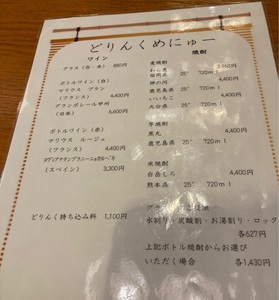 どりんくめにゅー
ワイン
グラス（白・赤） 880円
ボトルワイン（白）
マリウス ブラン
（フランス） 4,400円
グランポレール甲州
（日本） 6,600円
ボトルワイン（赤）
マリウス ルージュ
（フランス） 4,400円
（スペイン） 3,300円
どりんく持ち込み料 1,100円
焼酎
麦焼酎
25° 720ml
神の河 4,400円
鹿児島県 25° 720ml
いいちこ 4,400円
大分県 25° 720ml
芋焼酎
黒丸 4,400円
鹿児島県 25° 720ml
米焼酎
白岳しろ 4,400円
熊本県 25° 720ml
水割り・炭酸割・お湯割り・ロック
各627円
上記ボトル焼酎からお選び
いただく場合 各1,430円